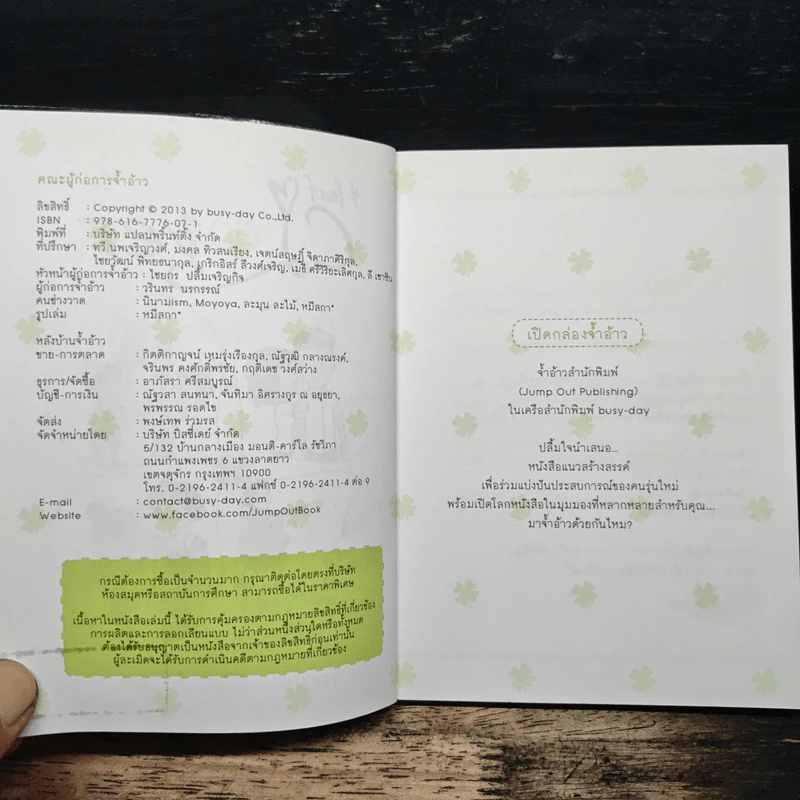 คณะผู้ก่อการจ้ำอ้าว
ลิขสิทธิ์ : Copyright © 2013 by busy-day Co.,Ltd.
ISBN : 978-616-7776-07-1
พิมพ์ที่ : บริษัท แปลนพริ้นท์ติ้ง จำกัด
ที่ปรึกษา : ทวี นพเจริญวงศ์, มงคล ทิวสนเรียง, เจตน์สฤษฎิ์ จิดาภาศิริกุล,
ไชยวัฒน์ พิทยธนากุล, เกริกอิสร์ ลีวงศ์เจริญ, เมธี ศรีวิริยะเลิศกุล, ลี เชาชิน
หัวหน้าผู้ก่อการจ้ำอ้าว : ไชยกร ปลื้มเจริญกิจ
ผู้ก่อการจ้ำอ้าว : วรินทร นรกรรณ์
คนช่างวาด : นินามism, Moyoya, ละมุน ละไม้, หมีสกา*
รูปเล่ม : หมีสกา*
หลังบ้านจ้ำอ้าว
ขาย-การตลาด : กิตติกาญจน์ เหมรุ่งเรืองกุล, ณัฐวุฒิ กลางณรงค์,
จรินพร คงศักดิ์พรชัย, กฤติเดช วงศ์สว่าง
ธุรการ/จัดซื้อ : อาภัสรา ศรีสมบูรณ์
บัญชี-การเงิน : ณัฐวสา สนทนา, จันทิมา อิศรางกูร ณ อยุธยา,
พรพรรณ รอดไข
จัดส่ง : พงษ์เทพ ร่วมรส
จัดจำหน่ายโดย : บริษัท บิสซี่เดย์ จำกัด
5/132 บ้านกลางเมือง มอนติ-คาร์โล รัชวิภา
ถนนกำแพงเพชร 6 แขวงลาดยาว
เขตจตุจักร กรุงเทพฯ 10900
โทร. 0-2196-2411-4 แฟกซ์ 0-2196-2411-4 ต่อ 9
E-mail : contact@busy-day.com
Website : www.facebook.com/JumpOutBook
กรณีต้องการซื้อเป็นจำนวนมาก กรุณาติดต่อโดยตรงที่บริษัท
ห้องสมุดหรือสถาบันการศึกษา สามารถซื้อได้ในราคาพิเศษ
เนื้อหาในหนังสือเล่มนี้ ได้รับการคุ้มครองตามกฎหมายลิขสิทธิ์ที่เกี่ยวข้อง
การผลิตและการลอกเลียนแบบ ไม่ว่าส่วนหนึ่งส่วนใดหรือทั้งหมด
ต้องได้รับอนุญาตเป็นหนังสือจากเจ้าของลิขสิทธิ์ก่อนเท่านั้น
ผู้ละเมิดจะได้รับการดำเนินคดีตามกฎหมายที่เกี่ยวข้อง
เปิดกล่องจ้ำอ้าว
จ้ำอ้าวสำนักพิมพ์
(Jump Out Publishing)
ในเครือสำนักพิมพ์ busy-day
ปลื้มใจนำเสนอ...
หนังสือแนวสร้างสรรค์
เพื่อร่วมแบ่งปันประสบการณ์ของคนรุ่นใหม่
พร้อมเปิดโลกหนังสือในมุมมองที่หลากหลายสำหรับคุณ...
มาจ้ำอ้าวด้วยกันไหม?